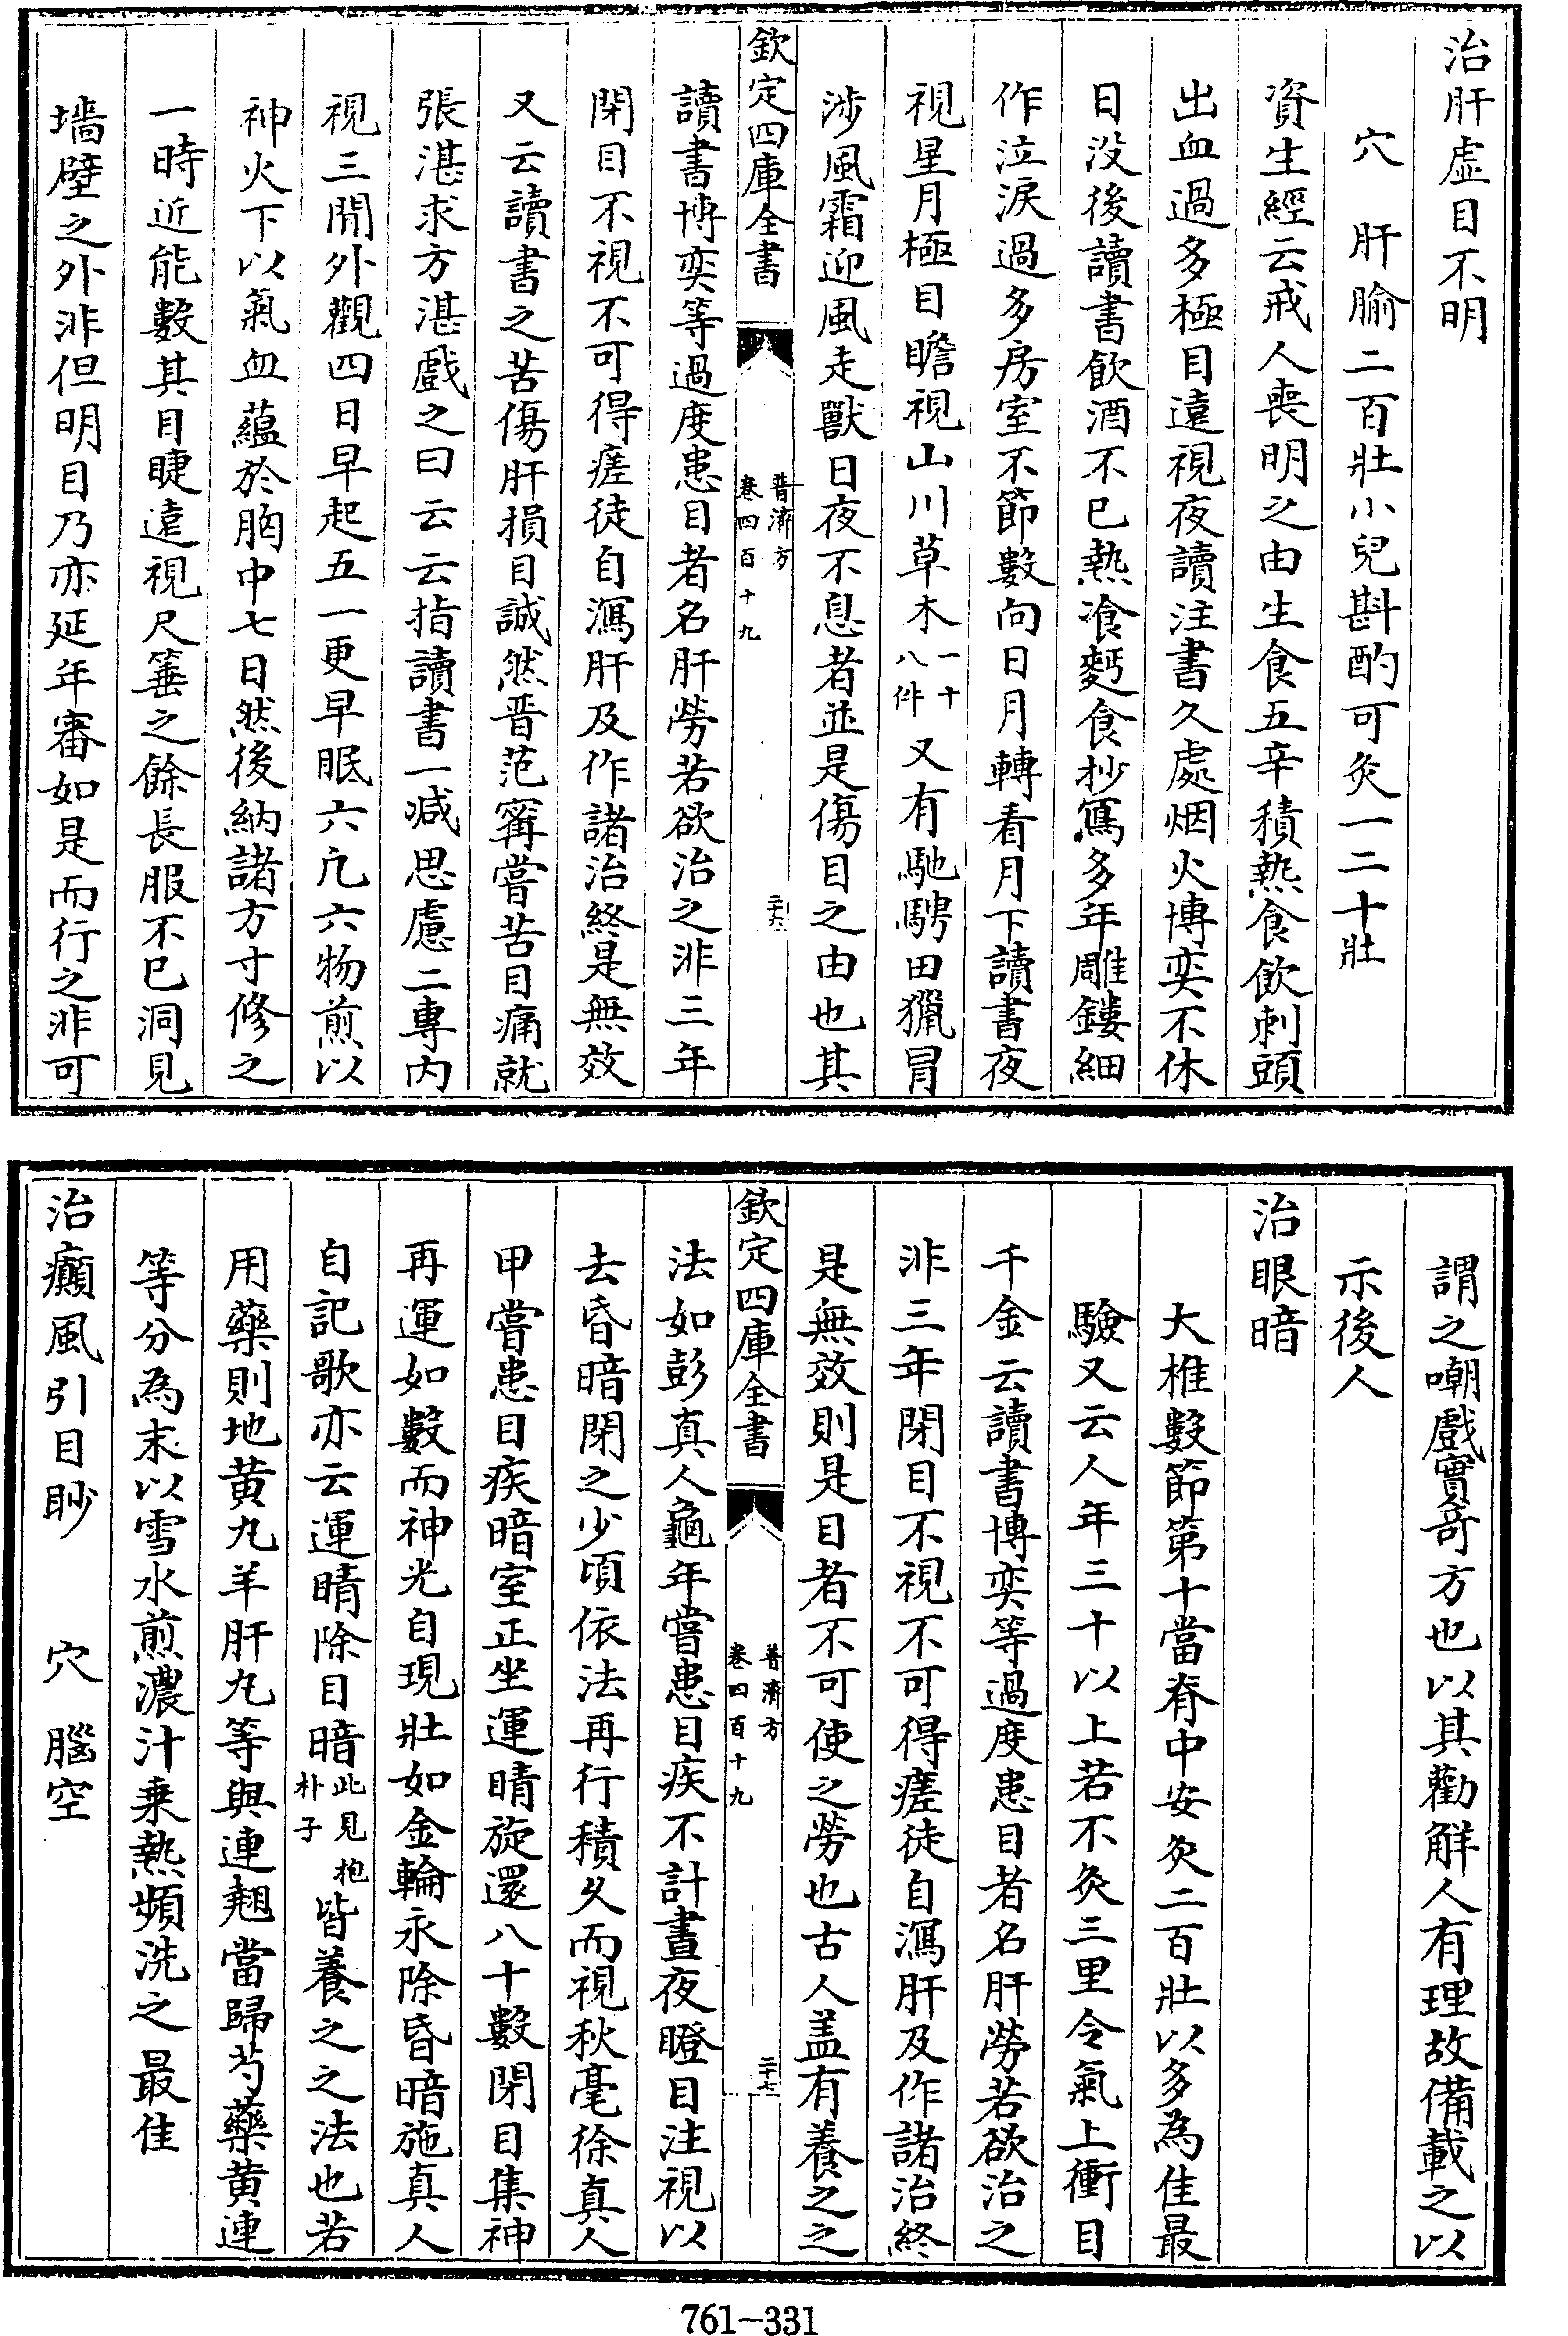 治肝虚目不明
穴　肝腧二百壯小兒斟酌可灸一二十壯
資生經云戒人喪明之由生食五辛積熱食飲刺頭
出血過多極目遠視夜讀注書久處烟火博奕不休
日没後讀書飲酒不已熱飡麪食抄寫多年雕鏤細
作泣淚過多房室不節數向日月轉看月下讀書夜
視星月極目瞻視山川草木一十八件又有馳騁田獵冒
涉風霜迎風走獸日夜不息者並是傷目之由也其
欽定四庫全書　普濟方卷四百十九　二十六
讀書博奕等過度患目者名肝勞若欲治之非三年
閉目不視不可得瘥徒自瀉肝及作諸治終是無效
又云讀書之苦傷肝損目誠然晋范甯嘗苦目痛就
張湛求方湛戲之曰云云指讀書一減思慮二專内
視三閒外觀四日早起五一更早眠六凢六物煎以
神火下以氣血蘊於胷中七日然後納諸方寸修之
一時近能數其目睫遠視尺箠之餘長服不已洞見
墻壁之外非但明目乃亦延年審如是而行之非可
謂之嘲戲實竒方也以其勸解人有理故備載之以
示後人
治眼暗
大椎數節第十當脊中安灸二百壯以多為佳最
驗又云人年三十以上若不灸三里令氣上衝目
千金云讀書博奕等過度患目者名肝勞若欲治之
非三年閉目不視不可得瘥徒自瀉肝及作諸治終
是無效則是目者不可使之勞也古人盖有養之之
欽定四庫全書　普濟方卷四百十九　二十七
法如彭真人龜年嘗患目疾不計晝夜瞪目注視以
去昏暗閉之少頃依法再行積久而視秋毫徐真人
甲嘗患目疾暗室正坐運睛旋還八十數閉目集神
再運如數而神光自現壯如金輪永除昏暗施真人
自記歌亦云運睛除目暗此見抱朴子皆養之之法也若
用藥則地黄丸羊肝丸等與連翹當歸芍藥黄連
等分為末以雪水煎濃汁乗熱頻洗之最佳
治癲風引目眇　穴　腦空
761-331